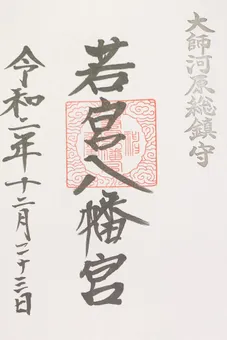 大師河原総鎮守
若宮八幡宮
令和二年十二月二十三日